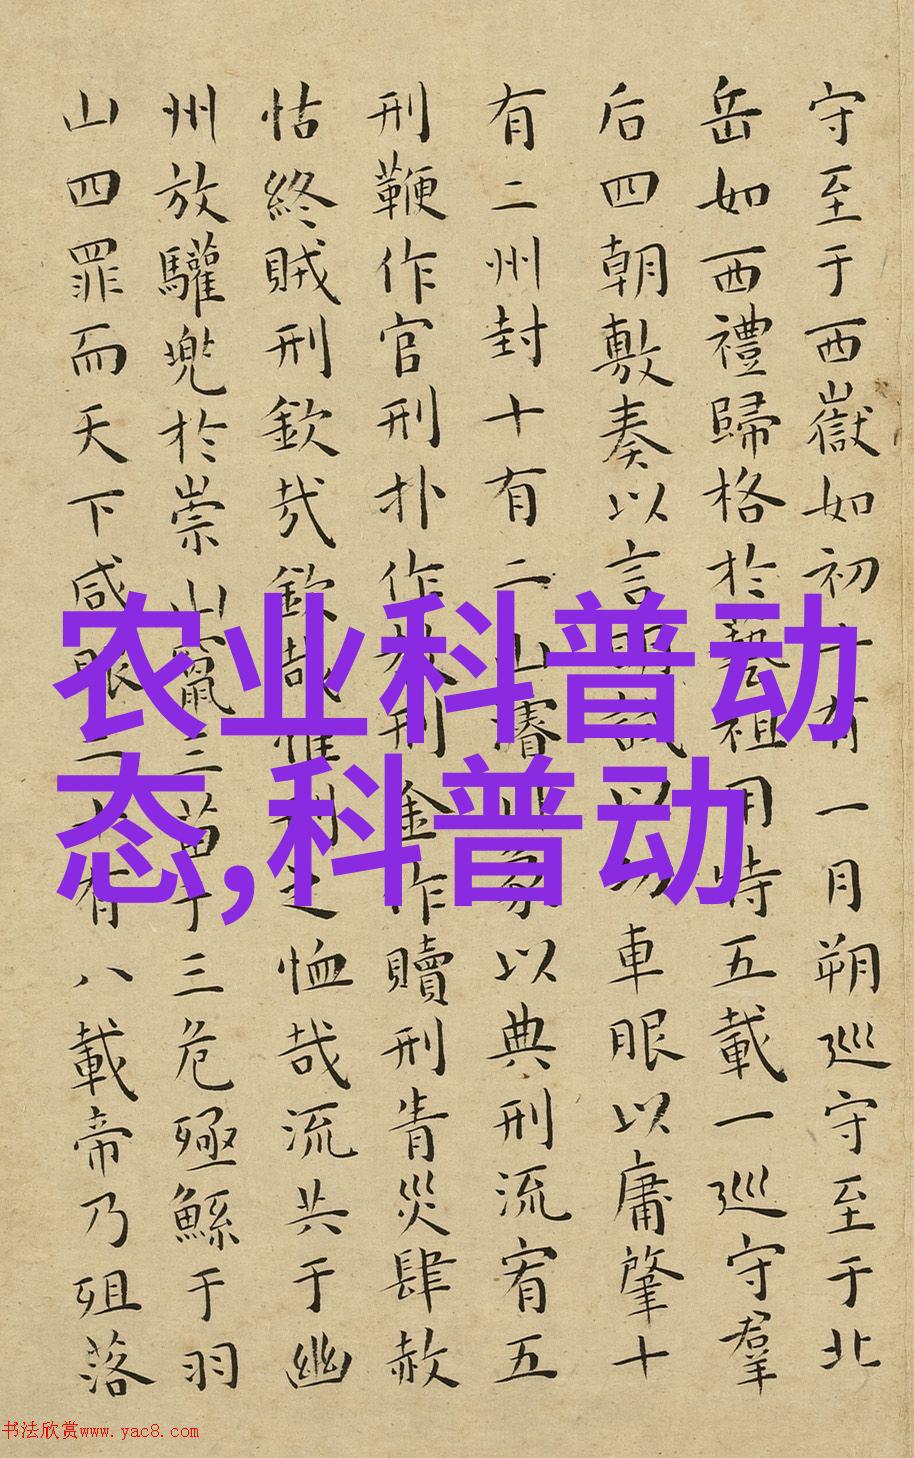 守至于西嶽如初十有一月朔巡守至于北
岳如西禮歸格於藝祖用特五載一巡守羣
后四朝敷奏以言明試以功車服以庸肇十
有二州封十有二山濬川象以典刑流宥五
刑鞭作官刑扑作教刑金作贖刑眚災肆赦
怙終賊刑欽哉欽哉惟刑之恤哉流共于幽
州放驩兜於崇山竄三苗于三危殛鯀于羽
山四罪而天下咸服二十有八載帝乃殂落
农业科普动
态,科普动
书法欣赏www.yac8.com